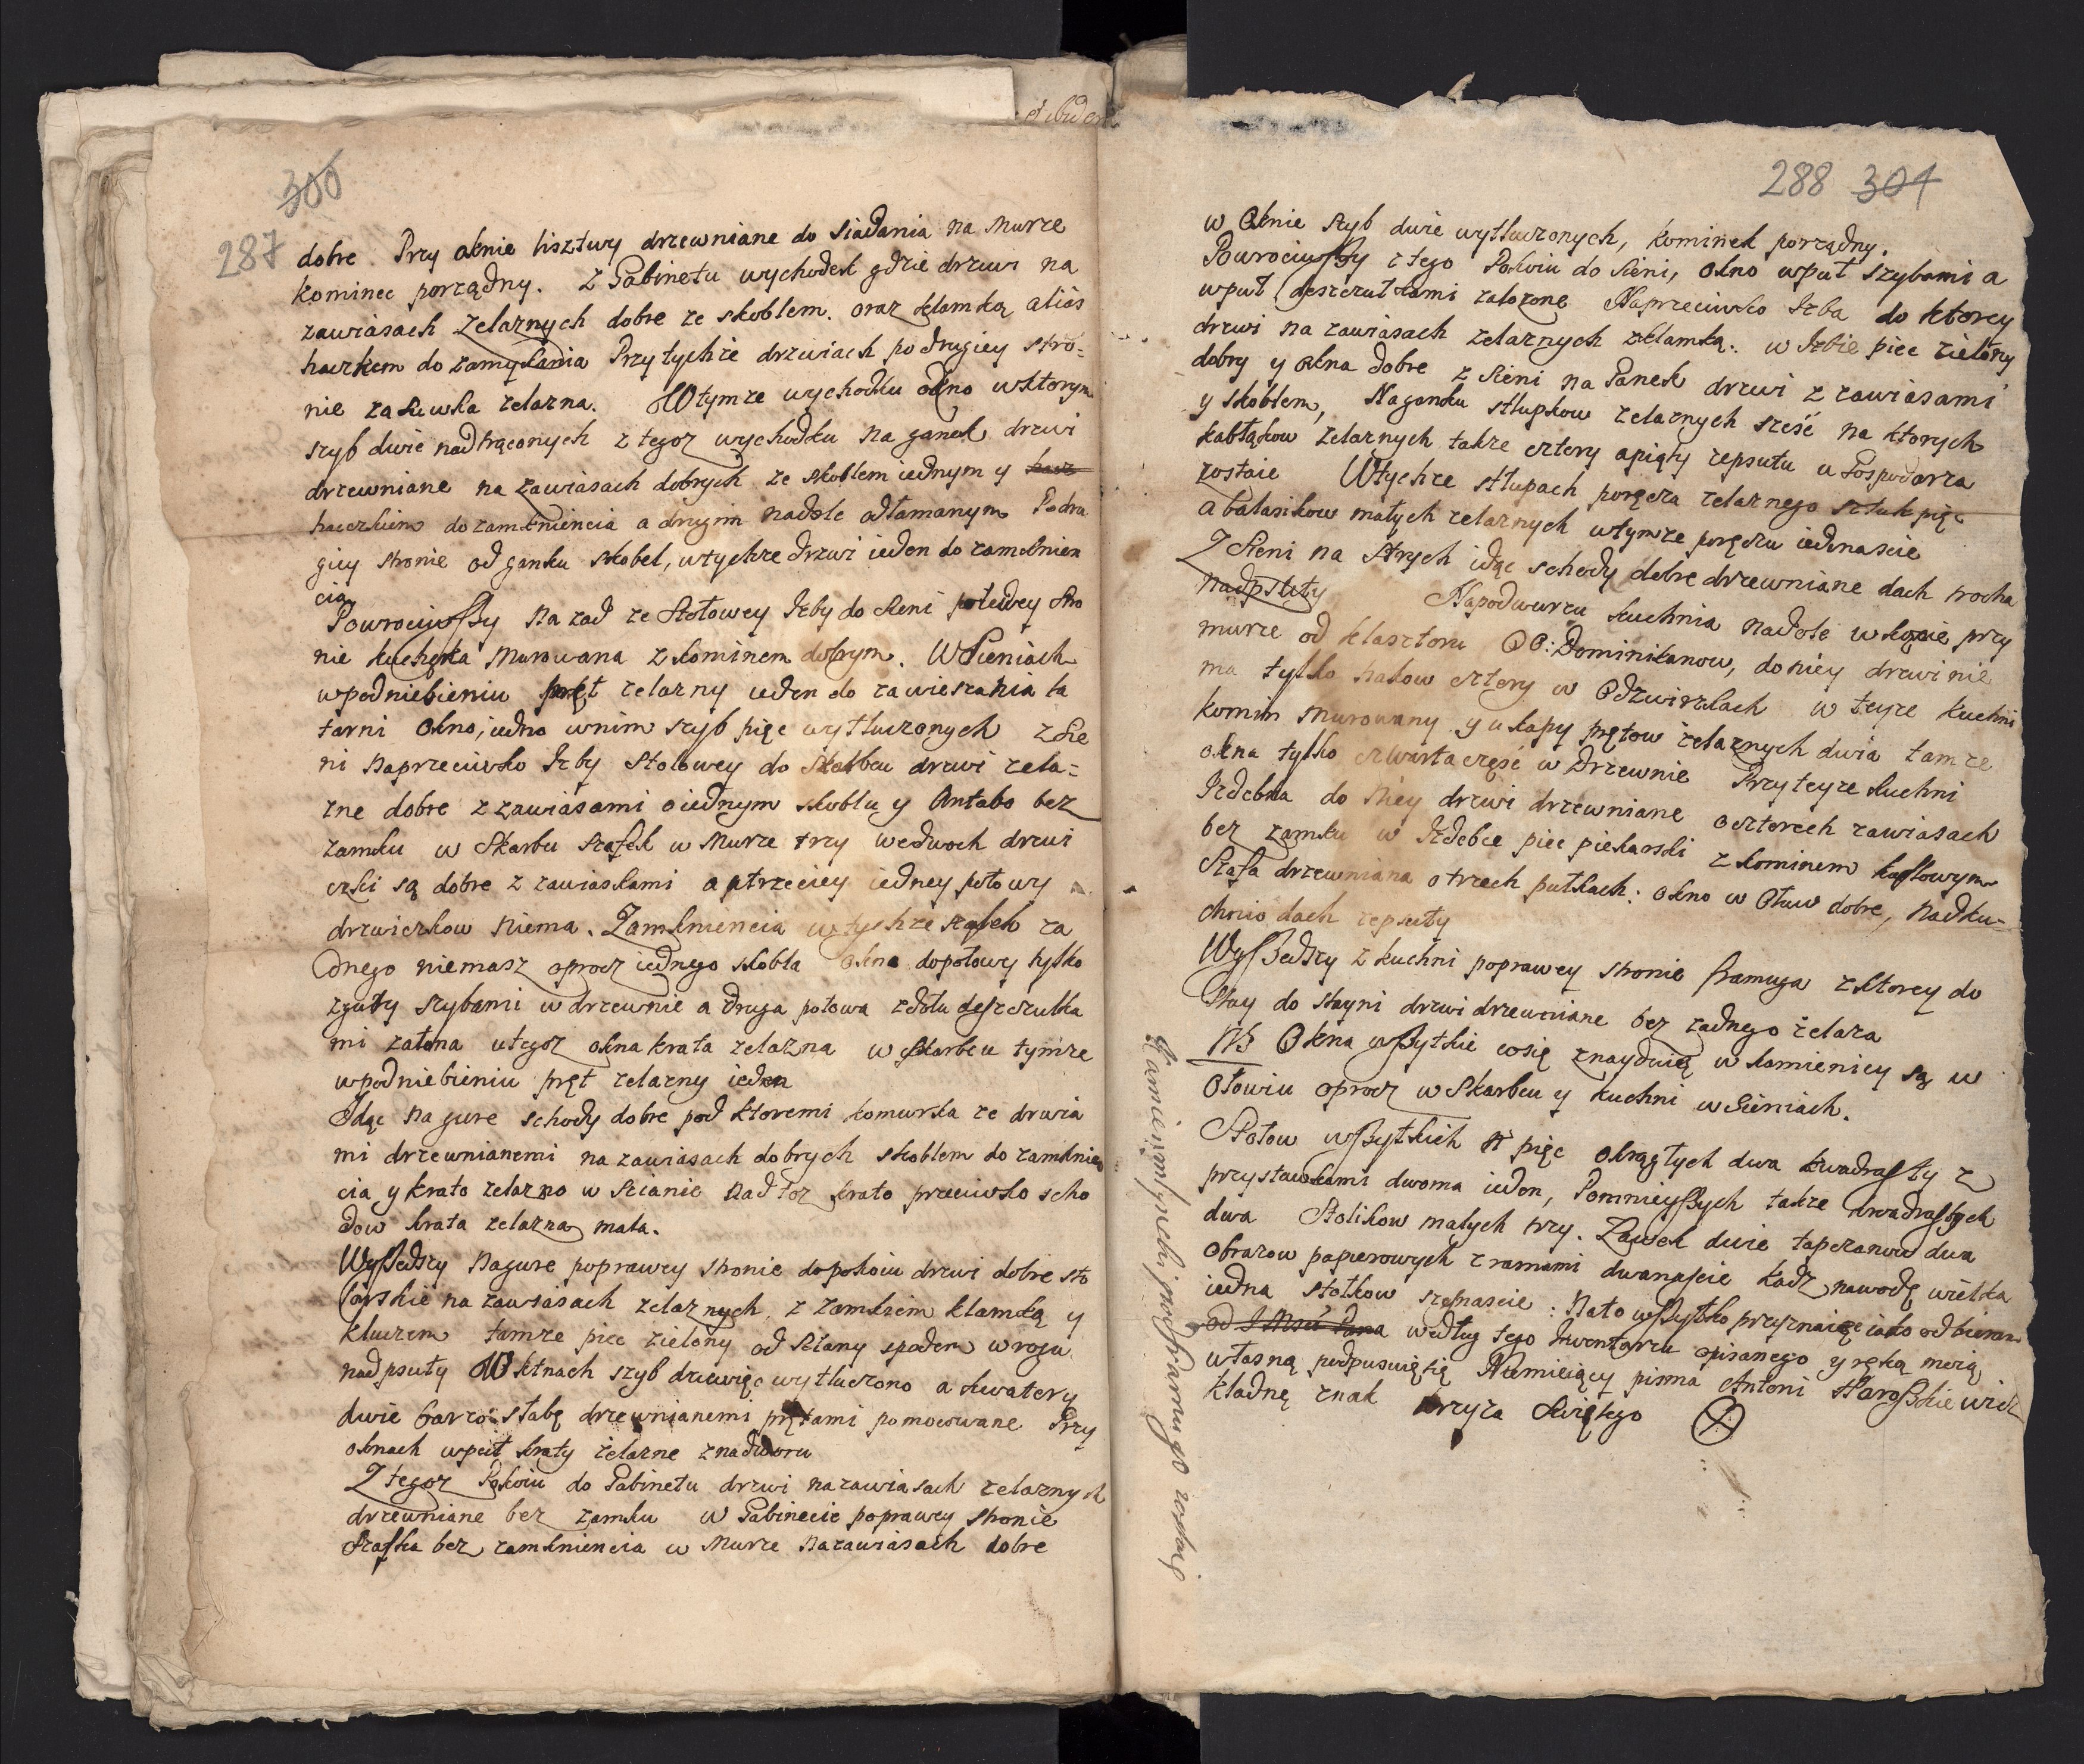 300
287
dobre. Przy oknie lisztwy drzewniane do siadania na Murze
kominec porządny. Z Gabinetu wychodek gdzie drzwi na
zawiasach Zelaznych dobre ze skoblem. oraz klamką aliàs
haczkiem do zamykania Przy tychże drzwiach po drugiey stro=
nie zasuwka zelazna. W tymze wychodku okno w ktorym
szyb dwie nadtrąconych z tegoz wychodku na ganek drzwi
drzewniane na zawiasach dobrych ze skoblem iednym y hacz
haczkiem do zamknięncia a drugim nadole odłamanym Podru
giey stronie od ganku skobel, wtychze drzwi ieden do zamknien
cia
Powrociwszy Na zad ze Stołowey Izby do Sieni po lewey Stro
nie kuchęka Murowana z kominem dobrym. W Sieniach
w podniebieniu pręt zelazny ieden do zawieszania la
tarni Okno, iedno w nim szyb pięc wytłuczonych z Sie
ni Naprzeciwko Izby Stolowey do Skarbcu drzwi zela=
zne dobre z zawiasami o iednym skoblu y Antabo bez
zamku w Skarbu Szafek w Murze trzy we dwoch drzwi
czki są dobre z zawiaskami a u trzeciey iedney połowy
drzwiczkow Niema. Zamkniencia w tychze szafek za
dnego niemasz oprocz iednego skobla okno do połowy tylko
zguty szybami w drzewnie a druga połowa z dołu deszczulka
mi załona u tegoz okna krata zelazna w Skarbcu tymze
w podniebieniu pręt zelazny ieden
Idąc na gure schody dobre pod ktoremi komurka ze drzwia
mi drzewnianemi na zawiasach dobrych skoblem do zamknien
cia y krato zelazno w Scianie Nad toz krato przeciwko scho
dow krata zelazna mala.
Wyszedszy Nagure po prawey stronie do pokoiu drzwi dobre sto
larskie na zawiasach zelaznych z zamkiem klamką y
kluczem tamze piec zielony od sciany spodem w rogu
nadpsuty W oknach szyb dziewięc wytłuczono a kwatery
dwie barzo słabę drzewnianemi prętami pomocowane Przy
oknach wpuł kraty zelazne z nadworu
Z tegoz Pokoiu do Gabinetu drzwi na zawiasach zelaznych
drzewniane bez zamku w Gabinecie po prawey stronie
Szafka bez zamkniencia w Murze Na zawiasach dobre
288 304
w Oknie szyb dwie wytłuczonych, kominek porządny.
Powrociwszy z tego Pokoiu do Sieni, okno w puł szybami a
w puł deszczułkami założone Naprzeciwko Izba do ktorey
drzwi na zawiasach zelaznych z klamką. w Izbie piec zielony
dobry y okna dobre z Sieni na Ganek drzwi z zawiasami
y skoblem, Na ganku słupkow zelaznych sześć na ktorych
kabłąkow zelaznych także cztery a piąty zepsuty u Gospodarza
zostaie W tychze słupach poręcza zelaznego sztuk pięc
a balasikow małych zelaznych w tymze poręczu iedenascie
Z Sieni na Strych idąc schody dobre drzewniane dach trocha
nadpsuty Na podwurzu kuchnia na dole w kącie przy
murze od klasztoru OO: Dominikanow, do niey drzwi nie
ma tylko hakow cztery w Odrzwirzkach w teyze kuchni
komin murowany y u kapy prętow zelaznych dwia tamze
okna tylko czwarta część w Drzewnie Przy teyze kuchni
Izdebka do Niey drzwi drzewniane o czterech zawiasach
bez zamku w Izdebce piec piekarski z kominem kaflowym
Szafa drzewniana o trzech pułkach: okno w Ołuw dobre, Nad ku=
chnio dach zepsuty
Wyszedszy z kuchni po prawey stronie framuga z ktorey do
Stay do stayni drzwi drzewniane bez zadnego żelaza
NB Okna wszytkie co się znayduią w kamienicy są w
Ołowiu oprocz w Skarbcu y kuchni w Sieniach.
Stołow wszytkich pięc okrągłych dwa kwadrasty z
przystawkami dwoma ieden, Pomnieyszych także kwadrastych
dwa Stolikow małych trzy. Ławek dwie tapczanow dwa
Obrazow papierowych z ramami dwanascie kadz na wodę wielka
iedna stołkow szesnascie: Na to wszytko przyznaię iako odbieram
od JMsci Pana według tego Inwentarza opisanego y ręką moią
własną podpusuię się Nieumieiący pisma Antoni Haroszkiewicz
kładnę znak krzyza Swiętego